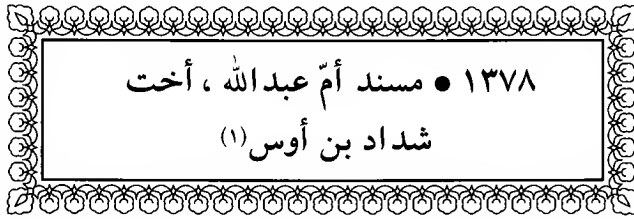 ١٣٧٨ ● مسند أمّ عبدالله ، أخت
شداد بن أوس(١)